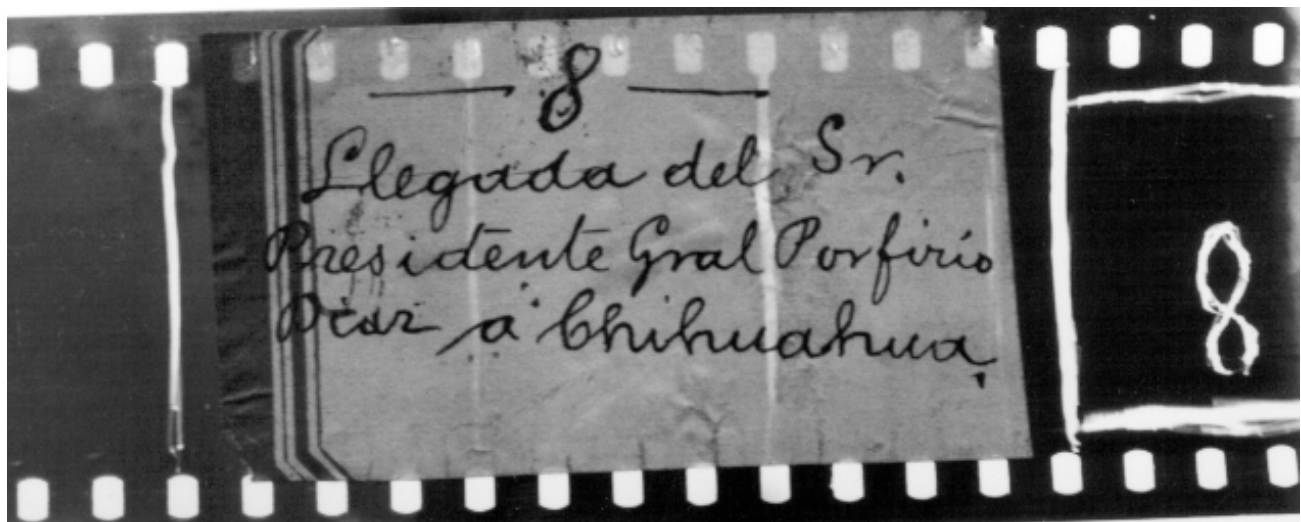 — 8 —
Llegada del Sr.
Presidente Gral Porfirio
Diaz a Chihuahua,
8